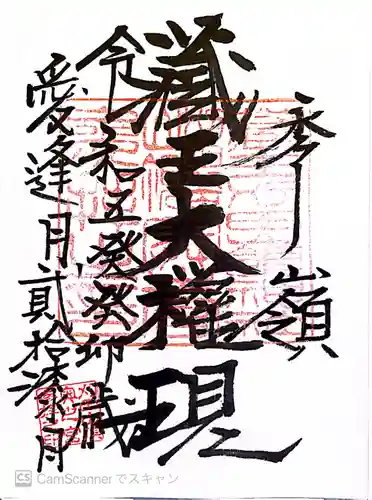 秀嶺
藏王大權現
令和五癸癸卯歳
愛逢月貳拾漆月
CamScannerでスキャン